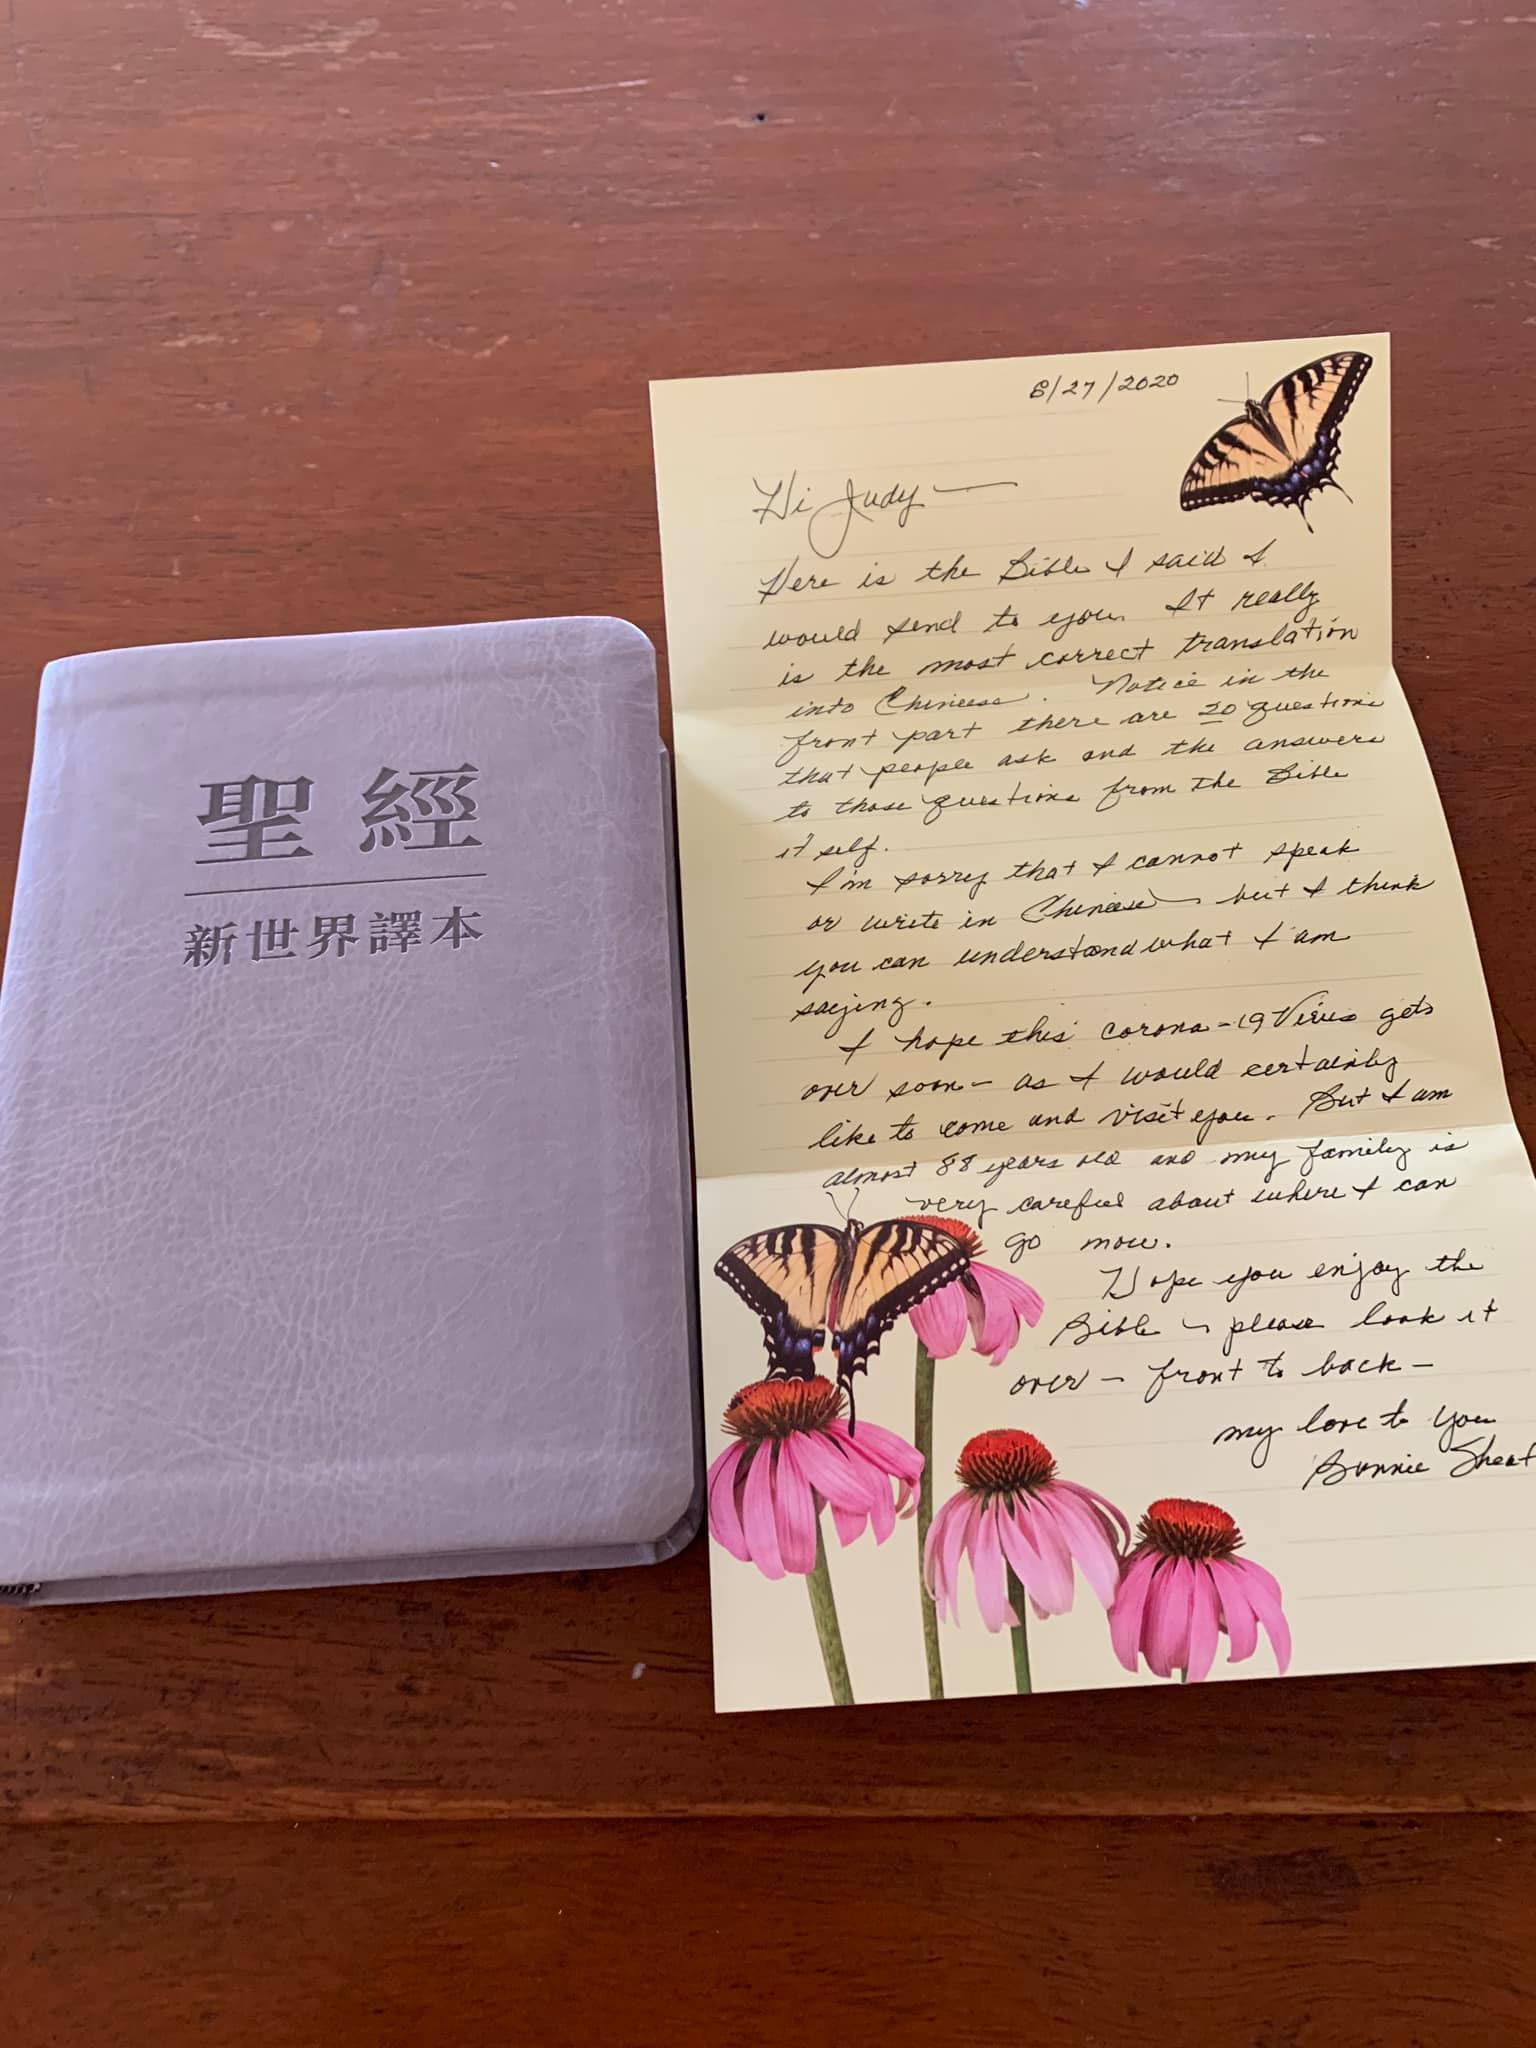 聖經
新世界譯本
6/27/2020
Hi Judy —
Here is the Bible I said I
would send to you. It really
is the most correct translation
into Chinese. Notice in the
front part there are 20 questions
that people ask and the answers
to those questions from the Bible
itself.
I'm sorry that I cannot speak
or write in Chinese – but I think
you can understand what I am
saying.
I hope this corona-19 Virus gets
over soon – as I would certainly
like to come and visit you. But I am
almost 88 years old and my family is
very careful about where I can
go now.
Hope you enjoy the
Bible – please look it
over – front to back –
my love to you
Bonnie